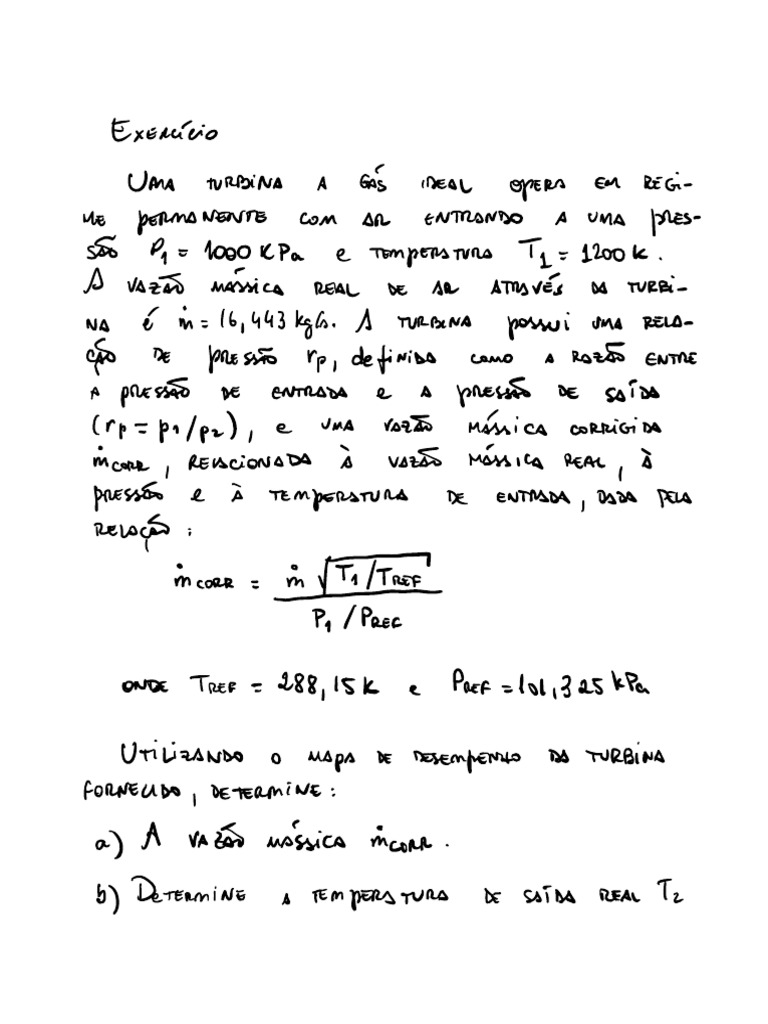 EXERCÍCIO
UMA TURBINA A GÁS IDEAL OPERA EM REGI-
ME PERMANENTE COM AR ENTRANDO A UMA PRES-
SÃO P1 = 1000 KPa e TEMPERATURA T1 = 1200 K.
A VAZÃO MÁSSICA REAL DE AR ATRAVÉS DA TURBI-
NA É ṁ = 16,443 kg/s. A TURBINA POSSUI UMA RELA-
ÇÃO DE PRESSÃO rp, definida COMO A RAZÃO ENTRE
A PRESSÃO DE ENTRADA E A PRESSÃO DE SAÍDA
(rp = p1/p2), E UMA VAZÃO MÁSSICA CORRIGIDA
ṁCORR, RELACIONADA À VAZÃO MÁSSICA REAL, À
PRESSÃO E À TEMPERATURA DE ENTRADA, DADA PELA
RELAÇÃO:
ṁCORR = ṁ √(T1/TREF)
P1/PREF
ONDE TREF = 288,15 K e PREF = 101,325 kPa
UTILIZANDO O MAPA DE DESEMPENHO DA TURBINA
FORNECIDO, DETERMINE:
a) A VAZÃO MÁSSICA ṁCORR.
b) DETERMINE A TEMPERATURA DE SAÍDA REAL T2